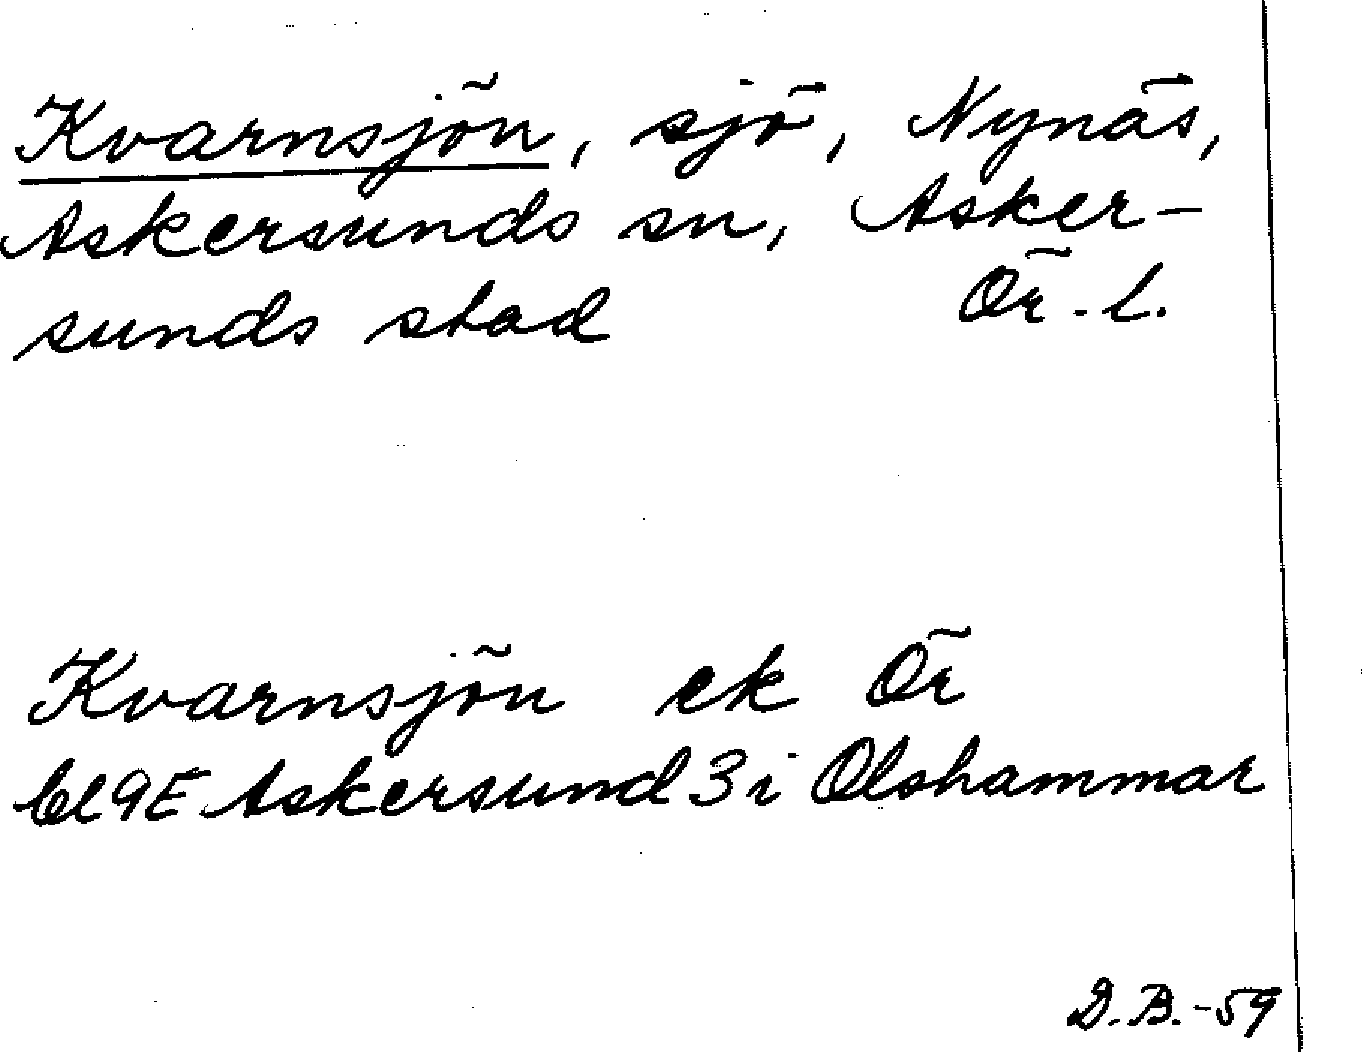 Kvarnsjön, sjö, Nynäs,
Askersunds sn, Asker-
sunds stad Ör. l.
Kvarnsjön ek Ör
bl 9E Askersund 3i Olshammar
D.B.-59